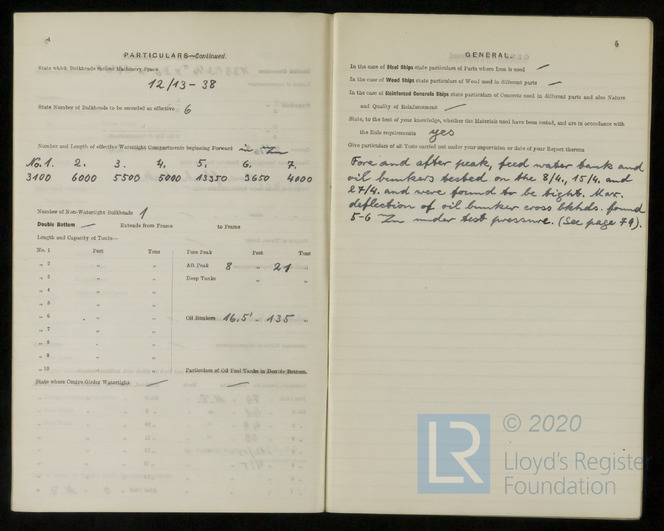 PARTICULARS—Continued.
State which Bulkheads enclose Machinery Space
12/13 - 38
State Number of Bulkheads to be recorded as effective 6
Number and Length of effective Watertight Compartments beginning Forward in
No. 1. 2. 3. 4. 5. 6. 7.
3100 6000 5500 5000 13350 3650 4000
Number of Non-Watertight Bulkheads 1
Double Bottom — Extends from Frame to Frame
Length and Capacity of Tanks—
No. 1 Feet Tons Fore Peak Feet Tons
„ 2 „ „ Aft Peak 8 „ 21 „
„ 3 „ „ Deep Tanks „ „
„ 4 „ „
„ 5 „ „
„ 6 „ „ Oil Bunkers 16.5' „ 135 „
„ 7 „ „
„ 8 „ „
„ 9 „ „
„ 10 „ „ Particulars of Oil Fuel Tanks in Double Bottom.
State where Centre Girder Watertight — —
GENERAL.
In the case of Steel Ships state particulars of Parts where Iron is used —
In the case of Wood Ships state particulars of Wood used in different parts —
In the case of Reinforced Concrete Ships state particulars of Concrete used in different parts and also Nature
and Quality of Reinforcement —
State, to the best of your knowledge, whether the Materials used have been tested, and are in accordance with
the Rule requirements yes
Give particulars of all Tests carried out under your supervision to date of your Report thereon
Fore and after peak, feed water tank and
oil bunkers tested on the 8/4., 15/4. and
27/4. and were found to be tight. Max.
deflection of oil bunker cross bkhds. found
5-6 under test pressure. (See page 79).
LR © 2020
Lloyd's Register
Foundation